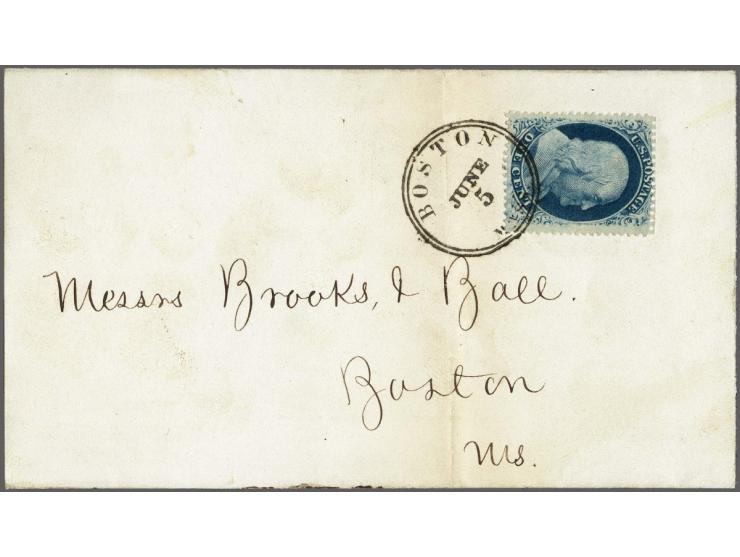 BOSTON
JUNE
5
U.S. POSTAGE
ONE CENT
Messrs Brooks, & Ball.
Boston
Ms.